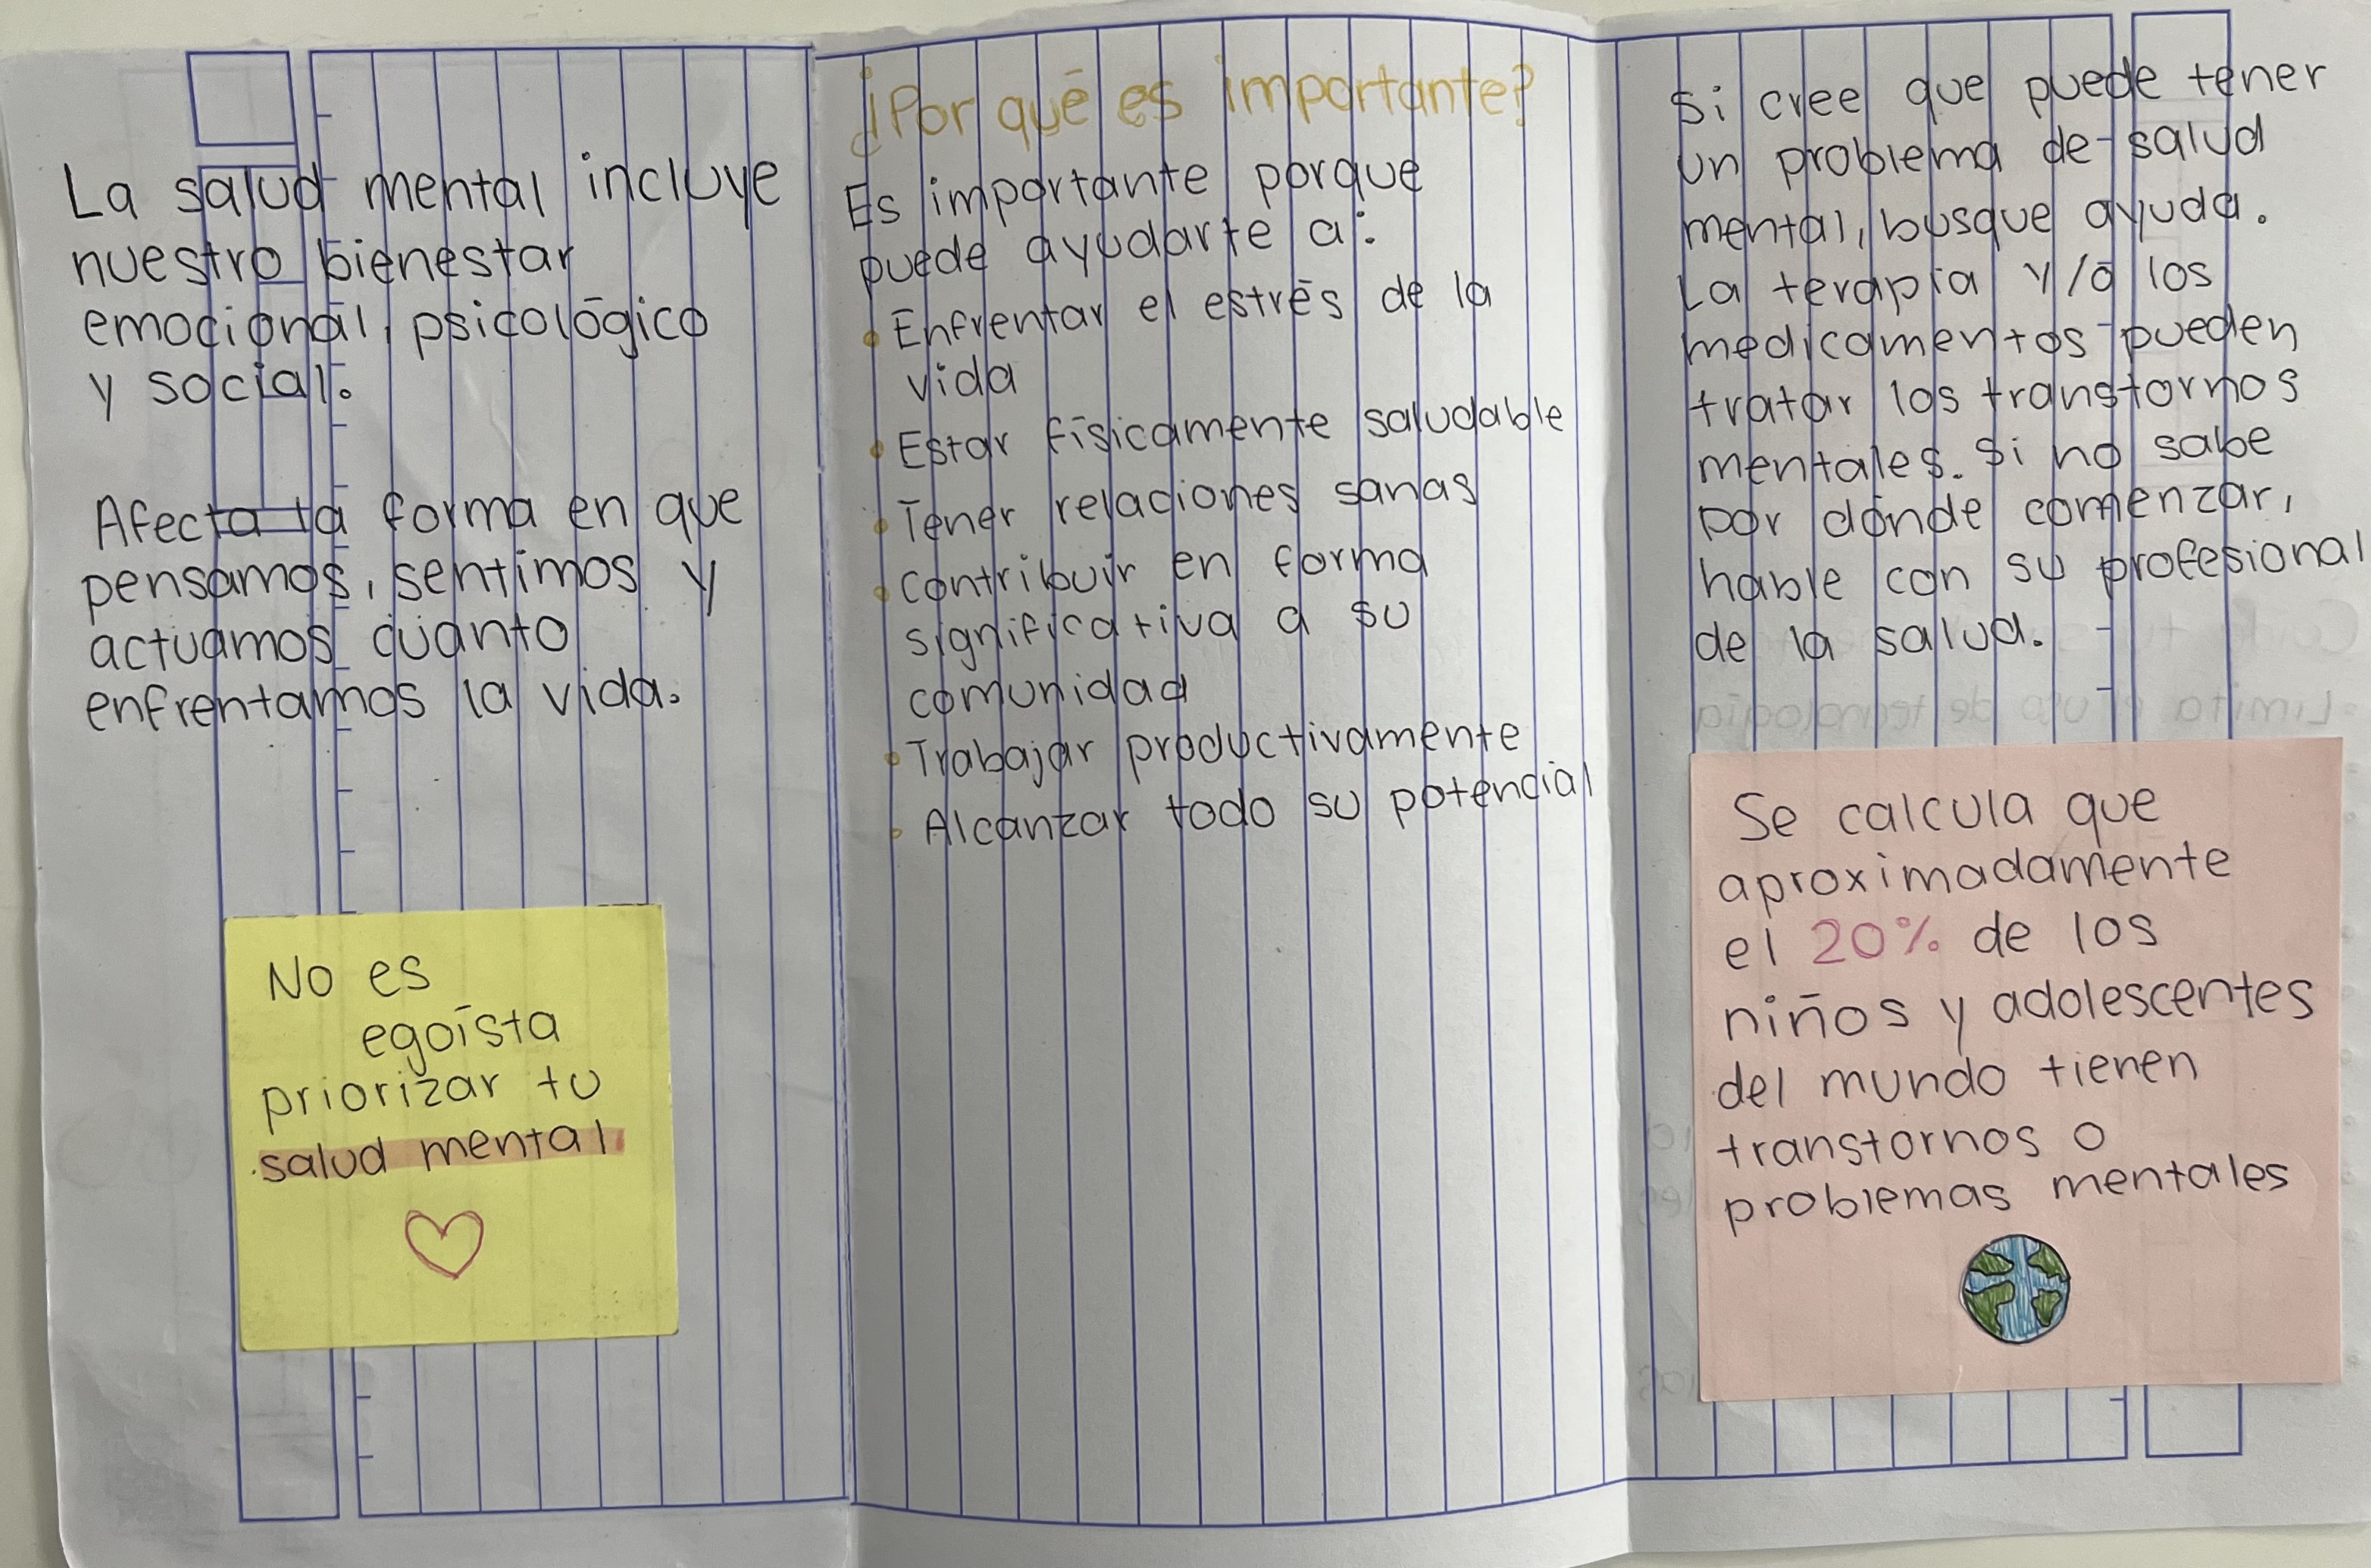 La salud mental incluye
nuestro bienestar
emocional, psicológico
y social.
Afecta la forma en que
pensamos, sentimos y
actuamos cuanto
enfrentamos la vida.
No es
egoísta
priorizar tu
salud mental
¿Por qué es importante?
Es importante porque
puede ayudarte a:
• Enfrentar el estrés de la
vida
• Estar físicamente saludable
• Tener relaciones sanas
• Contribuir en forma
significativa a su
comunidad
• Trabajar productivamente
• Alcanzar todo su potencial
Si cree que puede tener
un problema de salud
mental, busque ayuda.
La terapia y/o los
medicamentos pueden
tratar los transtornos
mentales. Si no sabe
por dónde comenzar,
hable con su profesional
de la salud.
Se calcula que
aproximadamente
el 20% de los
niños y adolescentes
del mundo tienen
transtornos o
problemas mentales